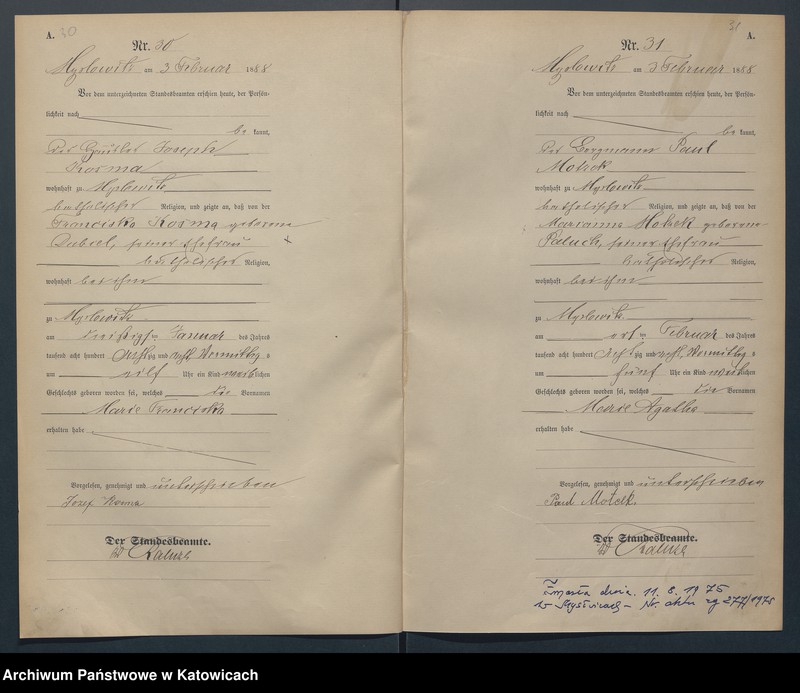 A. 30
Nr. 30
Myslowitz am 3 Februar 1888
Vor dem unterzeichneten Standesbeamten erschien heute, der Persön-
lichkeit nach
be kannt,
Der Häusler Joseph
Kosma
wohnhaft zu Myslowitz
katholischer Religion, und zeigte an, daß von der
Franciska Kosma geborene
Dubiel, seiner Ehefrau
katholischer Religion,
wohnhaft bei ihm
zu Myslowitz
am dreißigsten Januar des Jahres
tausend acht hundert achtzig und acht Vormittags
um elf Uhr ein Kind weiblichen
Geschlechts geboren worden sei, welches die Vornamen
Marie Franciska
erhalten habe
Vorgelesen, genehmigt und unterschrieben
Josef Kosma
Der Standesbeamte.
Kaluza
31 A.
Nr. 31
Myslowitz am 3 Februar 1888
Vor dem unterzeichneten Standesbeamten erschien heute, der Persön-
lichkeit nach
be kannt,
Der Bergmann Paul
Motzek
wohnhaft zu Myslowitz
katholischer Religion, und zeigte an, daß von der
Marianna Motzek geborene
Paluch, seiner Ehefrau
katholischer Religion,
wohnhaft bei ihm
zu Myslowitz
am ersten Februar des Jahres
tausend acht hundert achtzig und acht Vormittags
um fünf Uhr ein Kind weiblichen
Geschlechts geboren worden sei, welches die Vornamen
Marie Agathe
erhalten habe
Vorgelesen, genehmigt und unterschrieben
Paul Motzek.
Der Standesbeamte.
Kaluza
Zmarła dnia. 11. 8. 1975
w Mysłowicach - Nr. aktu zg 277/1975
Archiwum Państwowe w Katowicach